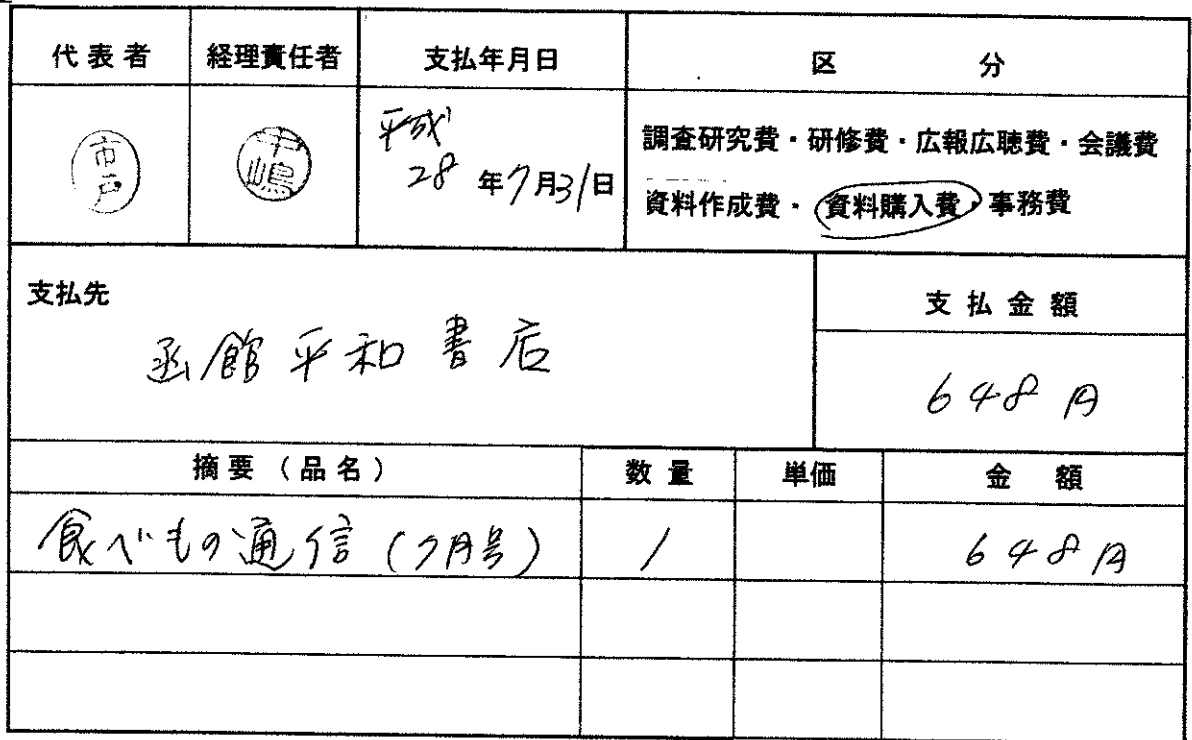 代表者 経理責任者 支払年月日 区 分
市戸 中嶋 平成28年7月31日 調査研究費・研修費・広報広聴費・会議費
資料作成費・資料購入費・事務費
支払先 支払金額
函館平和書店
648円
摘要(品名) 数量 単価 金 額
食べもの通信(7月号) 1 648円